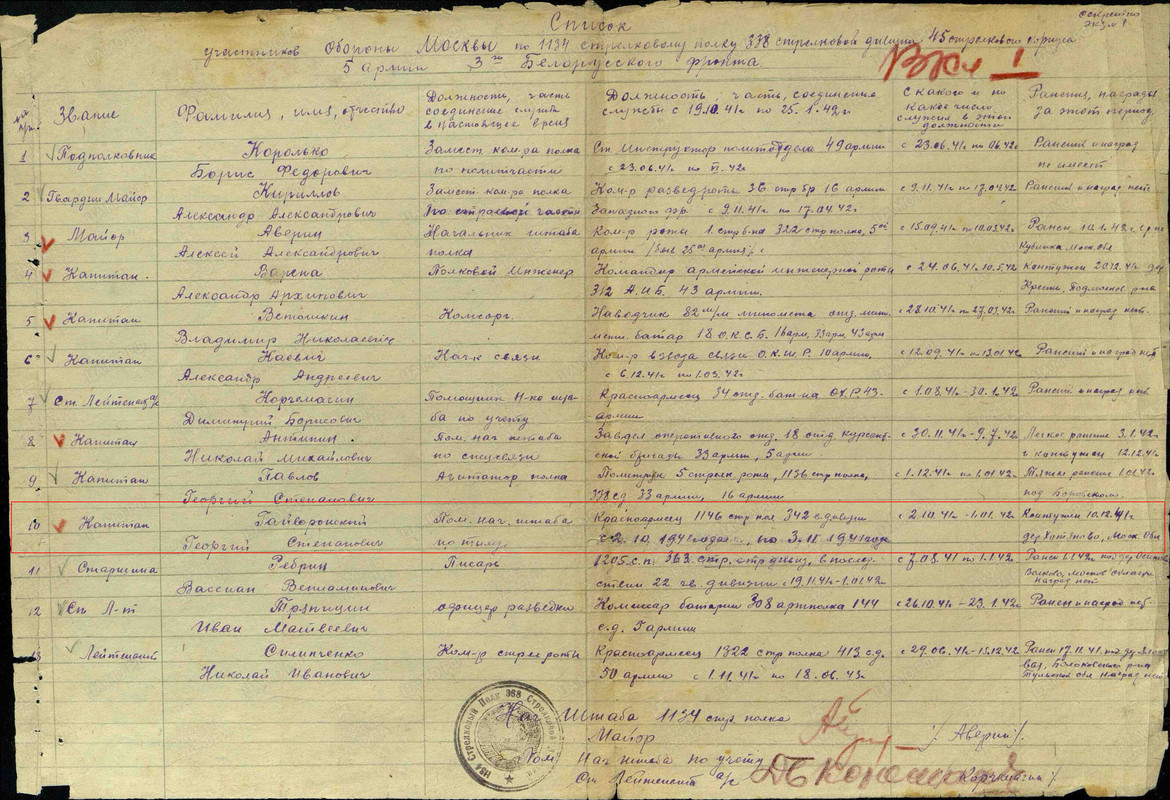 Секретно
экз. 1
Список
участников Обороны Москвы по 1134 стрелковому полку 338 стрелковой дивизии 45 стрелкового корпуса
5 армии 3го Белорусского фронта
Звание
Фамилия, имя, отчество
Должность, часть соединение служб в настоящее время
Должность, часть, соединение службы с 19.10.41г по 25.1.42г.
С какого и по какое число служил в этой должности
Ранения, награды за этот период
1 Подполковник Королько Замест. ком-ра полка Ст. Инструктор политотдела 49 армии с 23.06.41г по 06.42г Ранений и наград
Борис Федорович по политчасти с 23.06.41г по VI.42г не имеет
2 Гвардии Майор Кириллов Замест. ком-ра полка Ком-р разведроты 36 стр бр 16 армии с 9.11.41г по 17.04.42 Ранений и наград нет
Александр Александрович по строевой части Западного фр. с 9.11.41г по 17.04.42г
3 Майор Аверин Начальник штаба Ком-р роты 1 стр.б-на 322 стр полка, 5ой с 15.09.41г по 10.03.42г Ранен 10.1.42г
Алексей Александрович полка армии Кубинка Моск. обл
4 Капитан Варепа Полковой Инженер Командир армейской инженерной роты с 24.06.41г-10.5.42 Контужен 20.12.41г
Александр Архипович 312 А.И.Б. 43 армии.
5 Капитан Ветошкин Комсорг. Наводчик 82 м/м миномета отд. мин. с 28.10.41г по 27.03.42г Ранений и наград нет.
Владимир Николаевич батар 18 О.К.С.Б. 16 арм, 33 арм, 43 арм
6 Капитан Наевич Нач-к связи Ком-р взвода связи О.К.Ш.Р. 10 армии, с 12.09.41г Ранений и наград нет
Александр Андреевич с 6.12.41г по 1.03.42г
7 Ст. Лейтенант а/с Корчемагин Помощник Н-ка шта- Красноармеец 34 отд. бат-на ОХ.Р.43 с 1.08.41г-30.1.42 Ранений и наград
Дмитрий Борисович ба по учету армии
8 Капитан Антипин Пом. нач штаба Завдел оперативного отд. 18 отд. курсант- с 30.11.41г-9.7.42 Легкое ранение 3.1.42г
Николай Михайлович по спецсвязи ской бригады 33 армии, 5 арми и контужен 12.12.41г
9 Капитан Павлов Агитатор полка Политрук 5 стрелк рота, 1136 стр полка, с 1.12.41г по 1.01.42г Тяжел ранение 1.01.42г
Георгий Степанович 338 сд 33 армии, 16 армии под Боровском.
10 Капитан Гайворонский Пом. нач. штаба Красноармеец 1146 стр пол 342 с.дивизии с 2.10.41г-1.01.42г Контужен 10.12.41г
Георгий Степанович по тылу с 2.10.1941 года, по 3.11.1941 года дер Хотяново, Моск. Обл
11 Старшина Ребрин Писарь 1205 с.п. 363 стр. отр дивиз, в послед- с 7.08.41 по 1.1.42 Ранен 1.1.42г под дер
Вассиан Вениаминович ствии 22 гв. дивизии с 19.11.41г-1.01.42г наград нет
12 Ст Л-т Тряпицин офицер разведки Комиссар батареи 308 артполка 144 с 26.10.41г-23.1.42г Ранен и наград нет
Иван Матвеевич с.д. 5 армии
13 Лейтенант Силинченко Ком-р стрел роты Красноармеец 1322 стр полка 413 с.д. с 29.06.41г-15.12.42г Ранен 17.11.41г
Николай Иванович 50 армии с 1.11.41г по 18.06.43г Тульской обл наград нет
Нач Штаба 1134 стр. полка
Майор /Аверин/.
Пом Нач штаба по учету
Ст Лейтенант а/с /Корчмагин/
1134 Стрелковый Полк 338 Стрелковой